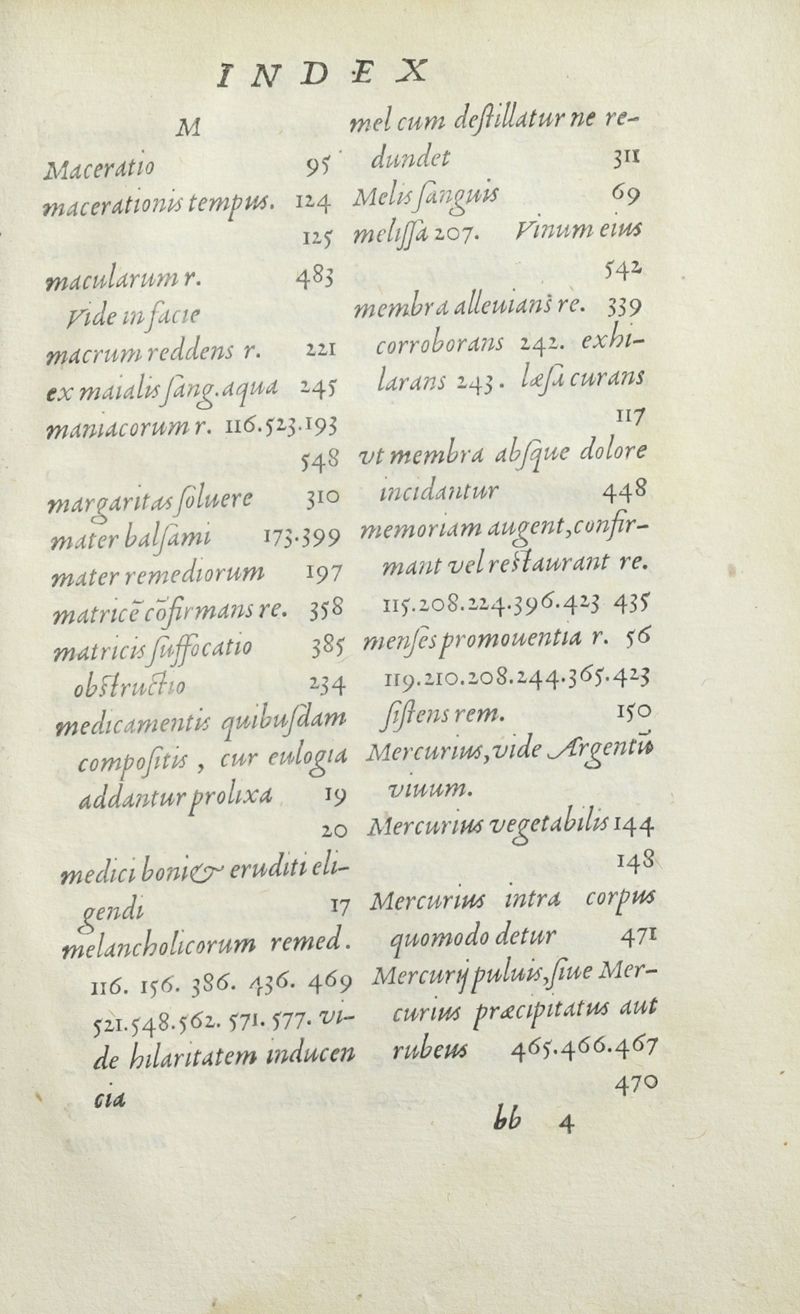 INDEX
M
Maceratio 95
macerationis tempus. 124
125
macularum r. 483
Vide in facie
macrum reddens r. 221
ex maialis ſang. aqua 245
maniacorum r. 116.523.193
548
margaritas ſoluere 310
mater balſami 173.399
mater remediorum 197
matricē cōfirmans re. 358
matricis ſuffocatio 385
obſtructio 234
medicamentis quibuſdam
compoſitis , cur eulogia
addantur prolixa 19
20
medici boni & eruditi eli-
gendi 17
melancholicorum remed.
116. 156. 386. 436. 469
521.548.562. 571. 577. vi-
de hilaritatem inducen
cia
mel cum deſtillatur ne re-
dundet 311
Melis ſanguis 69
meliſſa 207. Vinum eius
542
membra alleuians re. 339
corroborans 242. exhi-
larans 243. læſa curans
117
vt membra abſque dolore
incidantur 448
memoriam augent, confir-
mant vel reſtaurant re.
115.208.224.396.423 435
menſes promouentia r. 56
119.210.208.244.365.423
ſiſtens rem. 150
Mercurius, vide Argentū
viuum.
Mercurius vegetabilis 144
148
Mercurius intra corpus
quomodo detur 471
Mercurij puluis, ſiue Mer-
curius præcipitatus aut
rubeus 465.466.467
470
bb 4